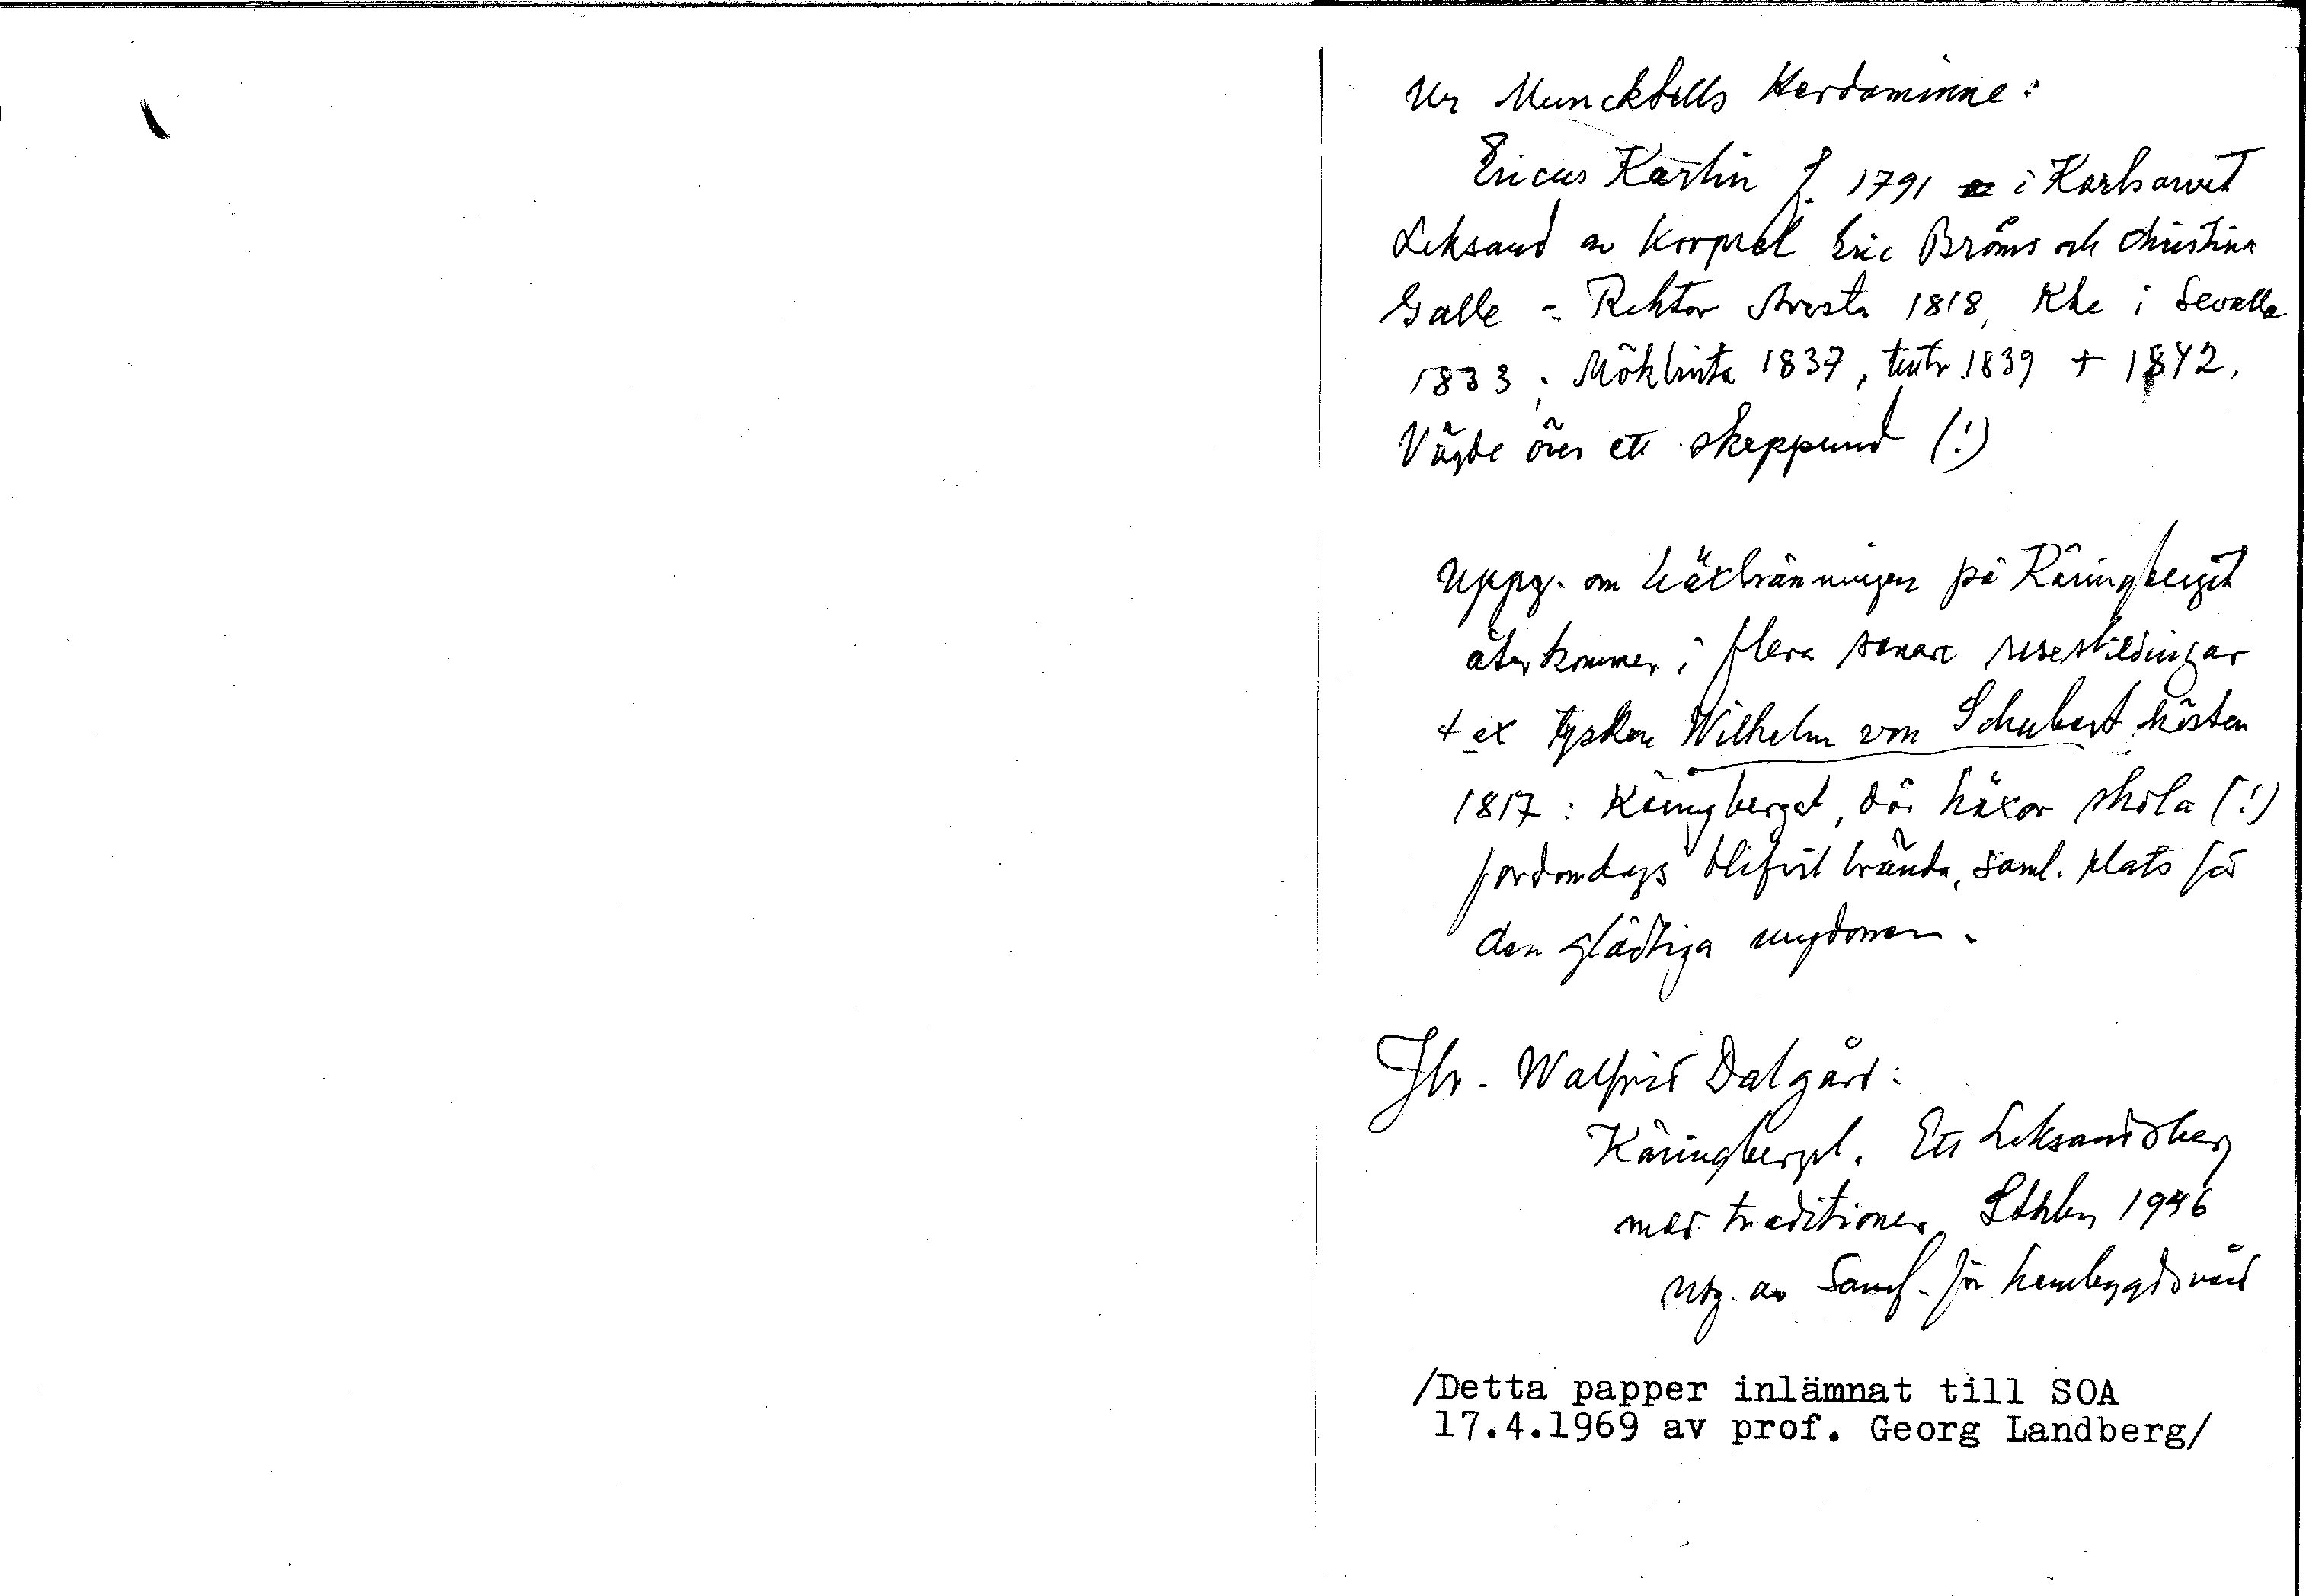 Ur Muncktells Herdaminne:
Ericus Karlin f. 1791 i Karlsarvet
Leksand av korpral Eric Bröms och Christina
Galle - Rektor Avesta 1818, Khe i Sevalla
1833; Möklinta 1837, tilltr 1839 + 1842.
Vägde över ett skeppund (!)
Uppg. om häxbränningen på Käringberget
återkommer i flera senare reseskildringar
t ex tysken Wilhelm von Schubert hösten
1817: Käringberget, där häxor skola (!)
fordomdags blifvit brända, saml. plats för
den glädtiga ungdomen.
Jfr. Walfrid Dalgård:
Käringberget. Ett Leksandsberg
med traditioner. Sthlm 1946
utg. av Samf. för hembygdsvård
/Detta papper inlämnat till SOA
17.4.1969 av prof. Georg Landberg/